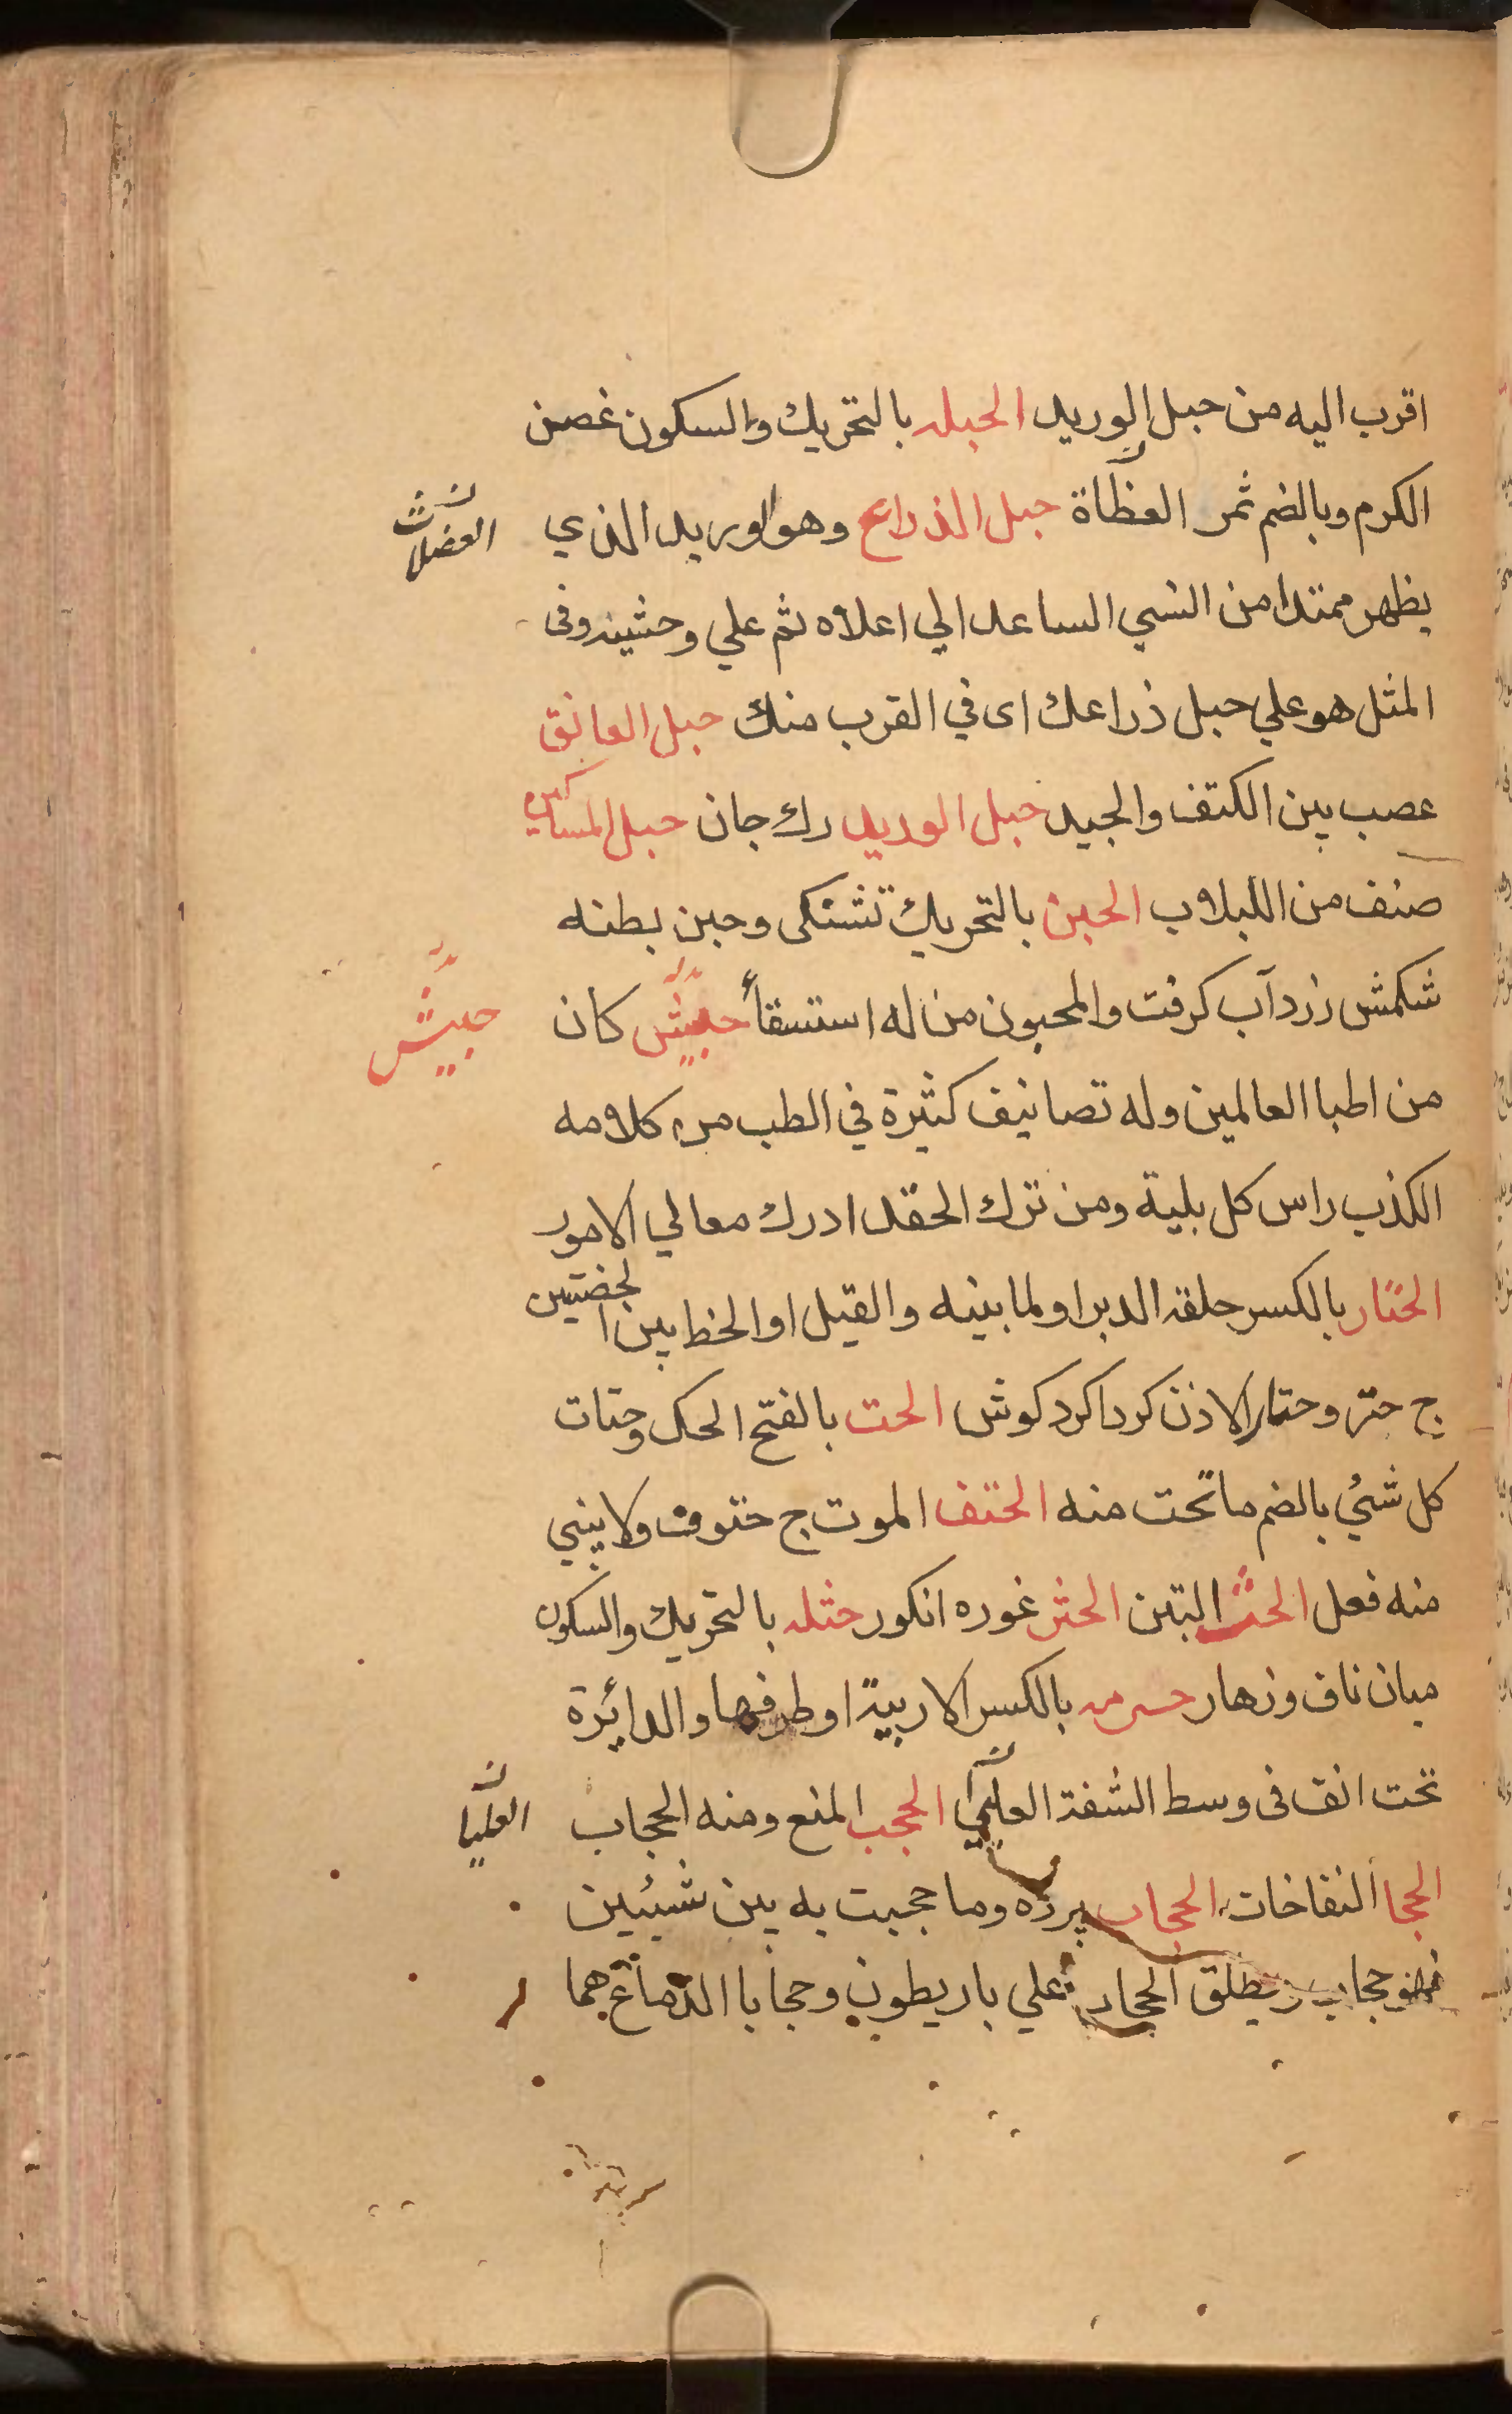 اقرب اليه من حبل الوريد الحبله بالتحريك والسكون غصن
الكرم وبالضم ثمر العظاة حبل الذراع وهو الوريد الذي
العضلات
يظهر ممتدا من النسي الساعد الي اعلاه ثم علي وحشيه وفى
المثل هو علي حبل ذراعك اى في القرب منك حبل العاتق
عصب بين الكتف والجيد حبل الوريد رك جان حبل المساكين
صنف من اللبلاب الحبن بالتحريك تشنكى وحبن بطنه
شكمش زرد آب كرفت والمحبون من له استسقأ حبيش كان
حبيش
من اطبا العالمين وله تصانيف كثيرة في الطب من كلامه
الكذب راس كل بلية ومن ترك الحقد ادرك معالي الامور
الحتار بالكسر حلقة الدبر او لما بينه والقبل او الخط بين الخصيتين
ج حتر وحتار الاذن كرداكرد كوش الحت بالفتح الحك وحتات
كل شئ بالضم ما تحت منه الحتف الموت ج حتوف ولا يبني
منه فعل الحث التبن الحثر غوره انكور حثله بالتحريك والسكون
ميان ناف وزهار بالكسر الاربية او طرفها والدائرة
تحت انف فى وسط الشفة العليا الحجب المنع ومنه الحجاب
العليا
الحجا النفاخات الحجاب پرده وما حجبت به بين شيئين
فهو حجاب ويطلق الحجاب علي باريطون وحجابا الدماغ هما